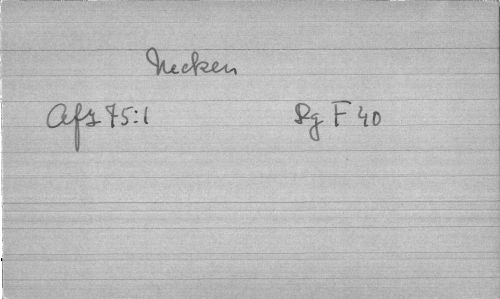 Necken
Afz 75:1 Sg F 40